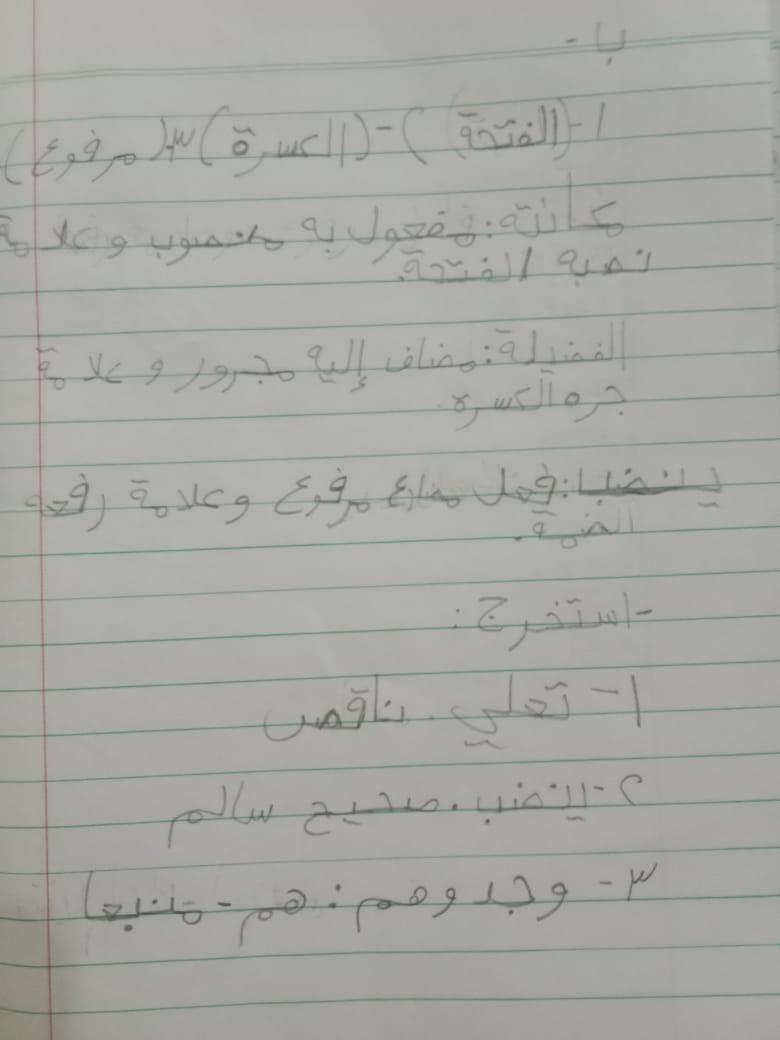 ب -
١- (الفتحة) - (الكسرة) ٣ (مرفوع)
مكانته: مفعول به منصوب وعلامة
نصبه الفتحة.
الفضيلة: مضاف إليه مجرور وعلامة
جره الكسره.
ينضب: فعل مضارع مرفوع وعلامة رفعه
الضمة.
- استخرج:
١- تعلي. ناقص
٢- ينضب. صحيح سالم
٣- وجدوهم: هم - منبعا